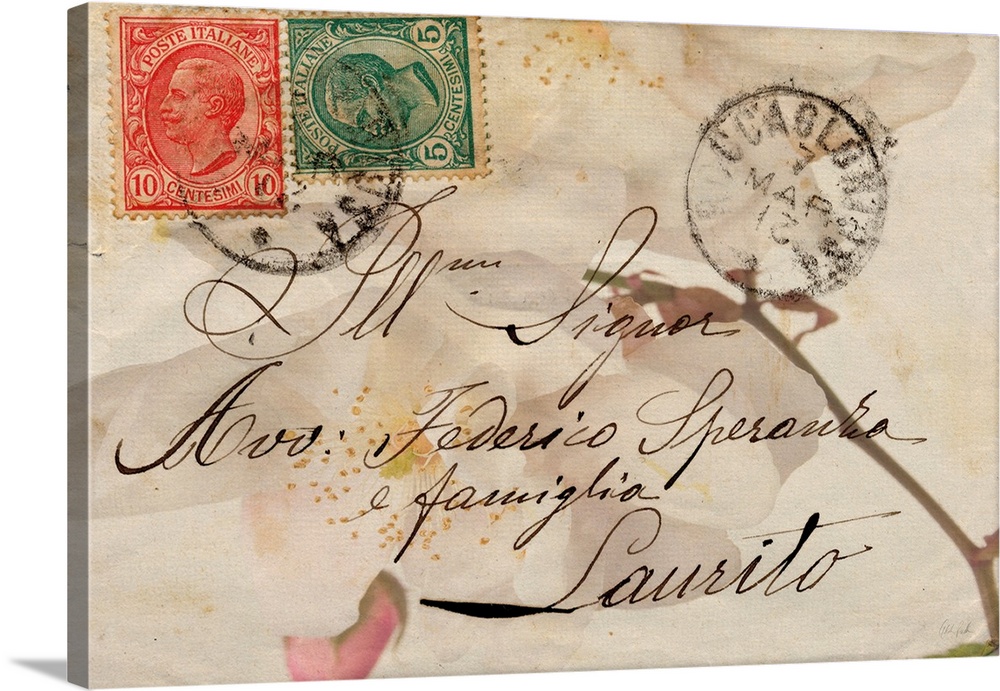 POSTE ITALIANE
10 CENTESIMI 10
POSTE ITALIANE
5 CENTESIMI 5
MAR
12
Ill mo Signor
Avv: Federico Speranza
e famiglia
Laurito